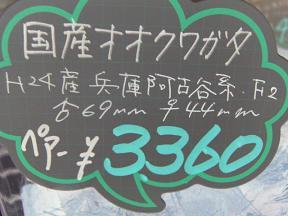 国産オオクワガタ
H24産 兵庫阿古谷系.F2
♂69mm ♀44mm
ペアー ¥3360